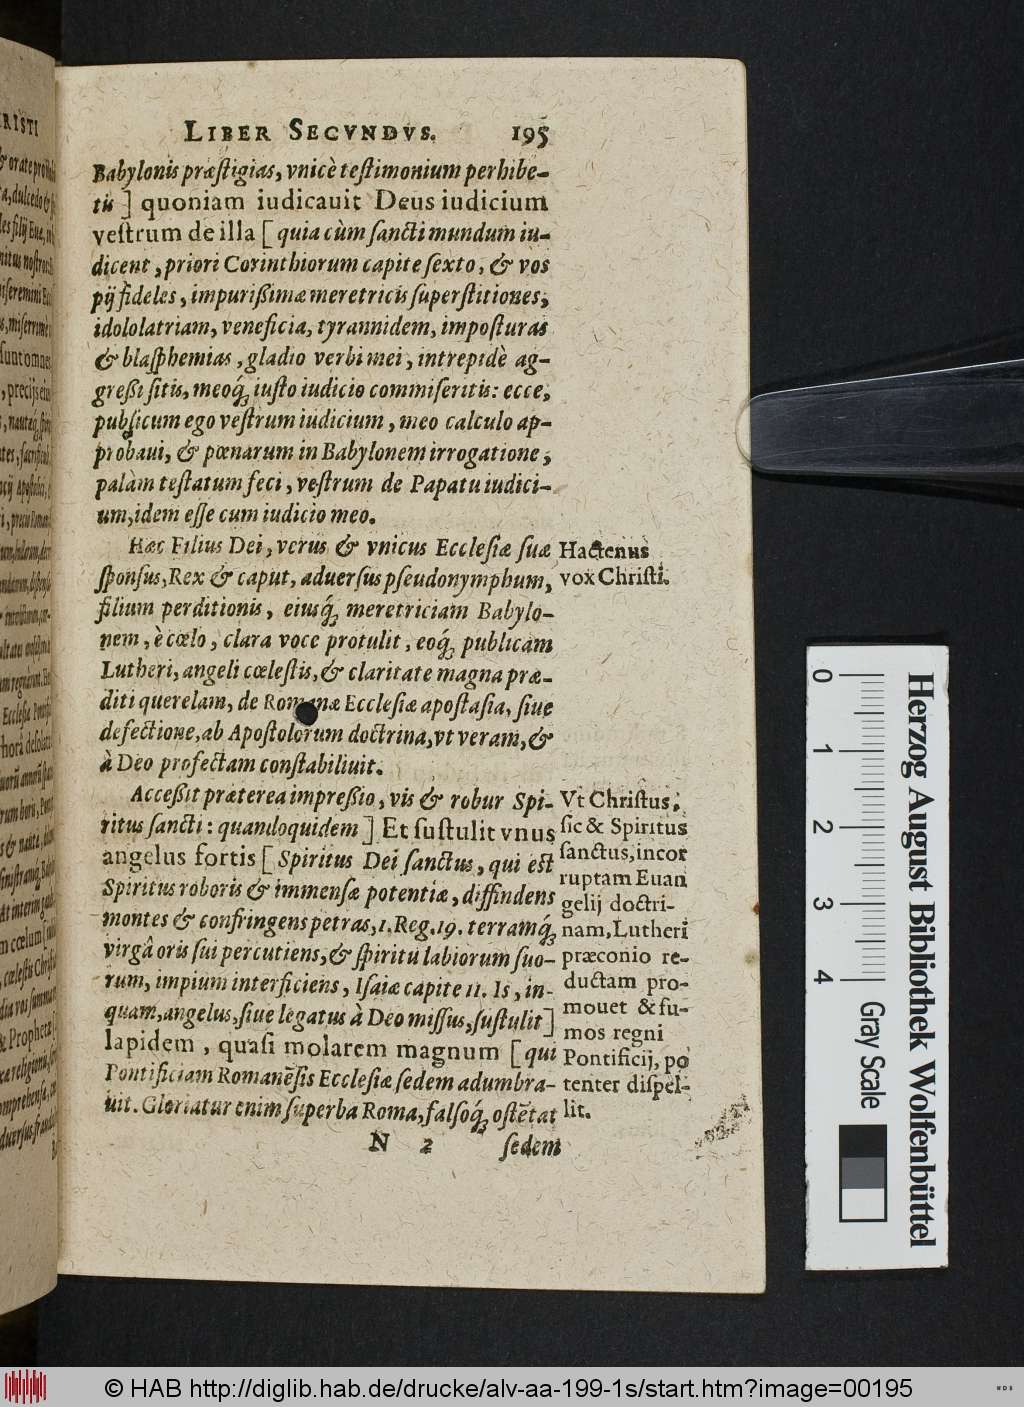 LIBER SECVNDVS. 195
Babylonis præſtigias, vnicè teſtimonium perhibe-
tis ] quoniam iudicauit Deus iudicium
veſtrum de illa [ quia cùm ſancti mundum iu-
dicent, priori Corinthiorum capite ſexto, & vos
pij fideles, impurißimæ meretricis ſuperſtitiones,
idololatriam, veneficia, tyrannidem, impoſturas
& blaſphemias, gladio verbi mei, intrepidè ag-
greßi ſitis, meoq́; iuſto iudicio commiſeritis: ecce,
publicum ego veſtrum iudicium, meo calculo ap-
probaui, & pœnarum in Babylonem irrogatione,
palàm teſtatum feci, veſtrum de Papatu iudici-
um, idem eſſe cum iudicio meo.
Hæc Filius Dei, verus & vnicus Eccleſiæ ſuæ
ſponſus, Rex & caput, aduerſus pſeudonymphum,
filium perditionis, eiusq́; meretriciam Babylo-
nem, è cœlo, clara voce protulit, eoq́; publicam
Lutheri, angeli cœleſtis, & claritate magna præ-
diti querelam, de Romanæ Eccleſiæ apoſtaſia, ſiue
defectione, ab Apoſtolorum doctrina, vt veram, &
à Deo profectam conſtabiliuit.
Acceßit præterea impreßio, vis & robur Spi-
ritus ſancti: quandoquidem ] Et ſuſtulit vnus
angelus fortis [ Spiritus Dei ſanctus, qui eſt
Spiritus roboris & immenſæ potentiæ, diffindens
montes & confringens petras, 1. Reg. 19. terramq́;
virgâ oris ſui percutiens, & ſpiritu labiorum ſuo-
rum, impium interficiens, Iſaiæ capite 11. Is, in-
quam, angelus, ſiue legatus à Deo miſſus, ſuſtulit ]
lapidem, quaſi molarem magnum [ qui
Pontificiam Romanẽſis Eccleſiæ ſedem adumbra-
uit. Gloriatur enim ſuperba Roma, falſoq́; oſtẽtat
N 2 ſedem
Hactenus
vox Chriſti.
Vt Chriſtus,
ſic & Spiritus
ſanctus, incor
ruptam Euan
gelij doctri-
nam, Lutheri
præconio re-
ductam pro-
mouet & fu-
mos regni
Pontificij, po
tenter diſpel-
lit.
RISTI
0 1 2 3 4
Herzog August Bibliothek Wolfenbüttel
Gray Scale
© HAB http://diglib.hab.de/drucke/alv-aa-199-1s/start.htm?image=00195